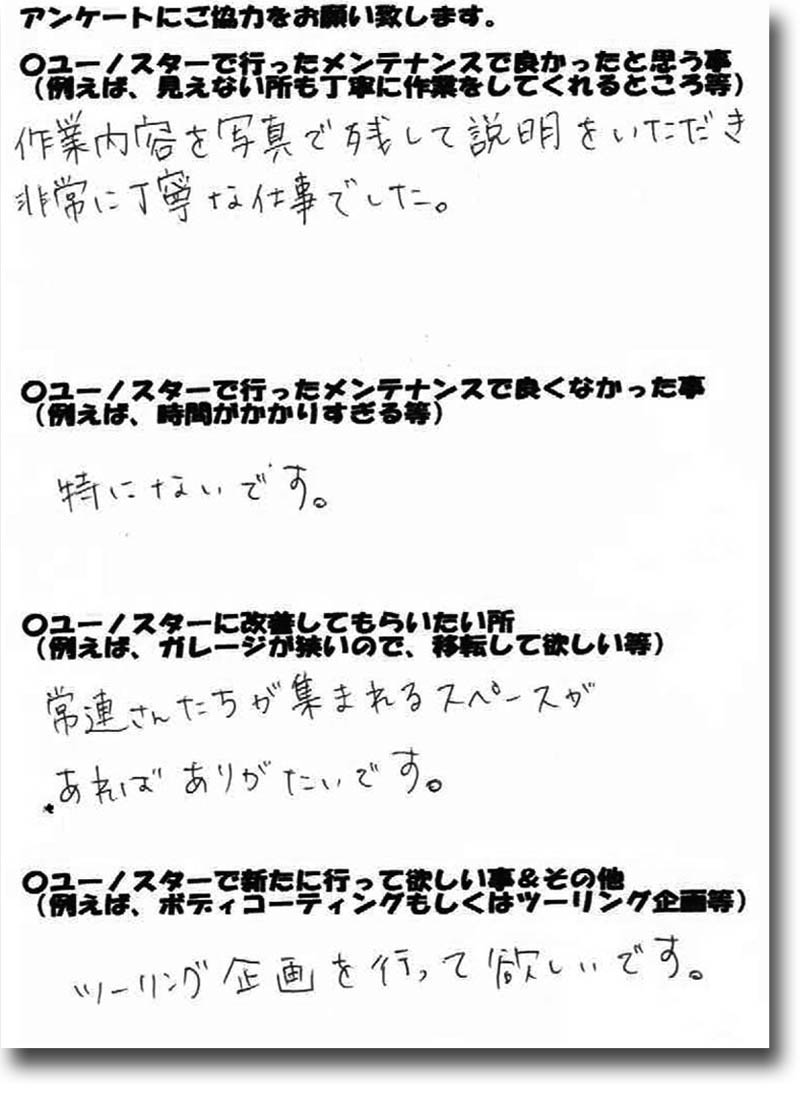 アンケートにご協力をお願い致します。
〇ユーノスターで行ったメンテナンスで良かったと思う事
（例えば、見えない所も丁寧に作業をしてくれるところ等）
作業内容を写真で残して説明をいただき
非常に丁寧な仕事でした。
〇ユーノスターで行ったメンテナンスで良くなかった事
（例えば、時間がかかりすぎる等）
特にないです。
〇ユーノスターに改善してもらいたい所
（例えば、ガレージが狭いので、移転して欲しい等）
常連さんたちが集まれるスペースが
あればありがたいです。
〇ユーノスターで新たに行って欲しい事＆その他
（例えば、ボディコーティングもしくはツーリング企画等）
ツーリング企画を行って欲しいです。